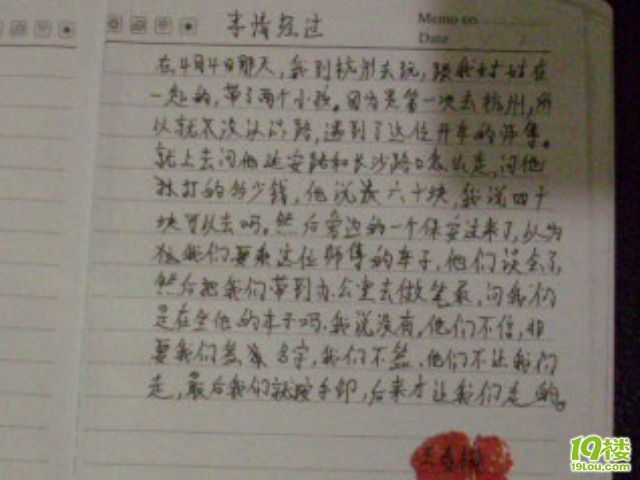 Memo no.
Date
事情经过
在4月4日那天,我到杭州去玩,跟我好好在
一起的,带了两个小孩。因为是第一次去杭州,所
以就不没认识路,遇到了这位开车的师傅。
就上去问他延安路和长沙路口怎么走,问他
我打的多少钱,他说最六十块,我说四十
块可以去吗。然后旁边的一个保安过来了,以为
我们要乘这位师傅的车子,他们误会了
然后把我们带到办公室去做笔录。问我们
是在坐他的车子吗,我说没有,他们不信,非
要我们签名字,我们不签,他们不让我们
走,最后我们就按手印,后来才让我们走的。
19楼
19lou.com